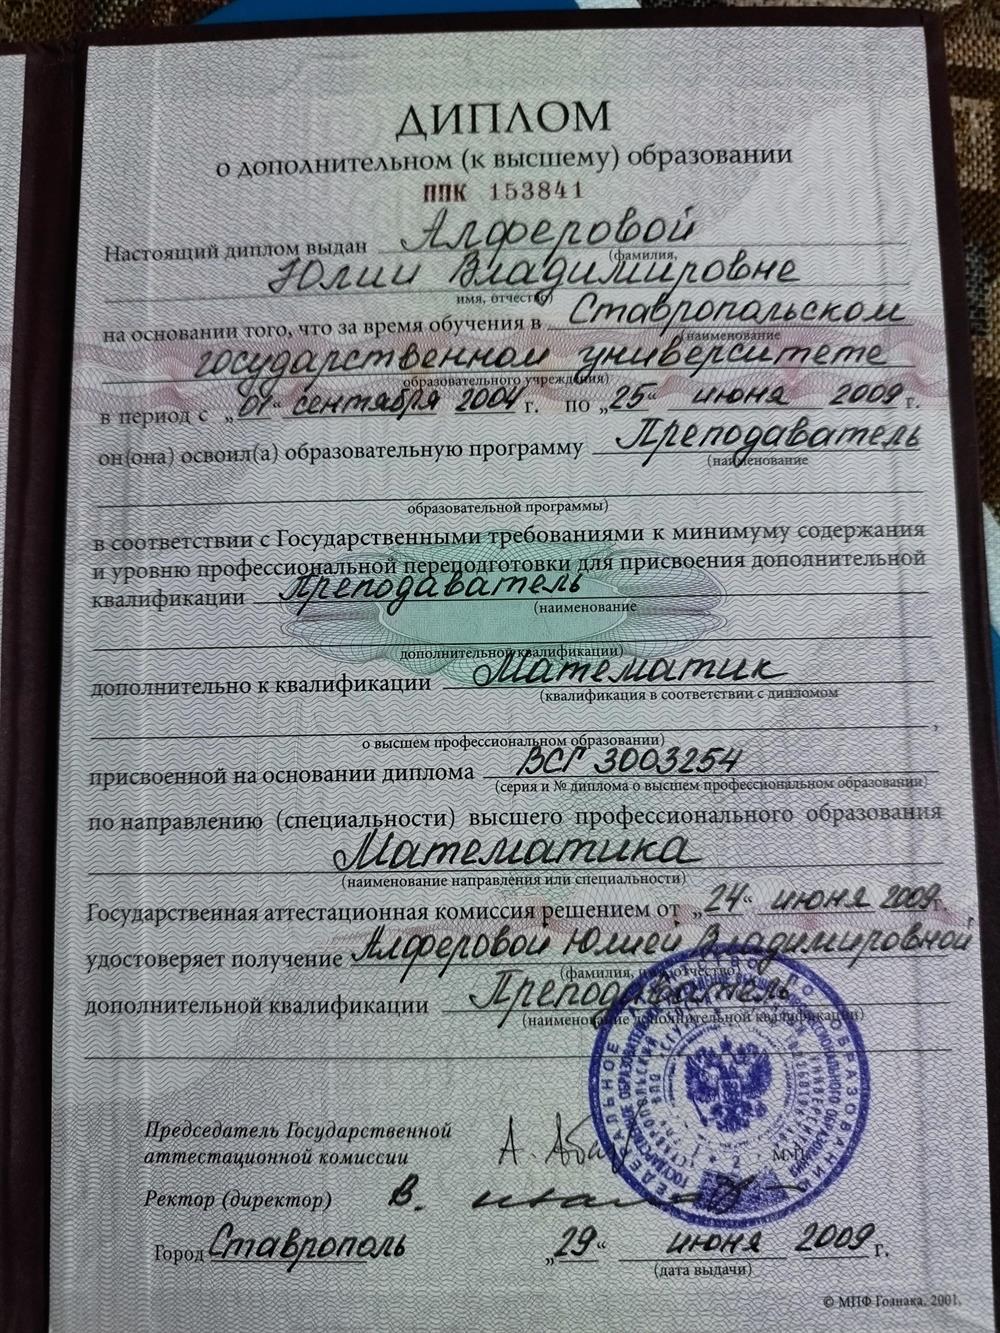 ДИПЛОМ
о дополнительном (к высшему) образовании
ППК 153841
Настоящий диплом выдан Алферовой
(фамилия,
Юлии Владимировне
имя, отчество)
на основании того, что за время обучения в Ставропольском
(наименование
государственном университете
образовательного учреждения)
в период с „01“ сентября 2004 г. по „25“ июня 2009 г.
он(она) освоил(а) образовательную программу Преподаватель
(наименование
образовательной программы)
в соответствии с Государственными требованиями к минимуму содержания
и уровню профессиональной переподготовки для присвоения дополнительной
квалификации Преподаватель
(наименование
дополнительной квалификации)
дополнительно к квалификации Математик
(квалификация в соответствии с дипломом
о высшем профессиональном образовании)
,
присвоенной на основании диплома ВСГ 3003254
(серия и № диплома о высшем профессиональном образовании)
по направлению (специальности) высшего профессионального образования
Математика
(наименование направления или специальности)
Государственная аттестационная комиссия решением от „24“ июня 2009г.
удостоверяет получение Алферовой Юлией Владимировной
(фамилия, имя, отчество)
дополнительной квалификации Преподаватель
(наименование дополнительной квалификации)
Председатель Государственной
аттестационной комиссии
М.П.
Ректор (директор)
Город Ставрополь „29“ июня 2009 г.
(дата выдачи)
© МПФ Гознака, 2001.